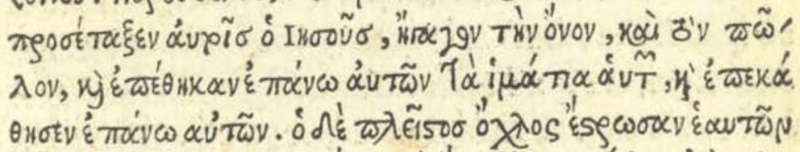 προσέταξεν ἀυτοῖς ὁ Ιησοῦς, ἤγαγον τὴν ὄνον, καὶ τὸν πῶ-
λον, κὶ ἐπέθηκαν ἐπάνω ἀυτῶν τὰ ἱμάτια ἁυτῶν, κὶ ἐπεκά
θησεν ἐπάνω αὐτῶν. ὁ δὲ πλεῖστος ὄχλος ἔστρωσαν ἑαυτῶν